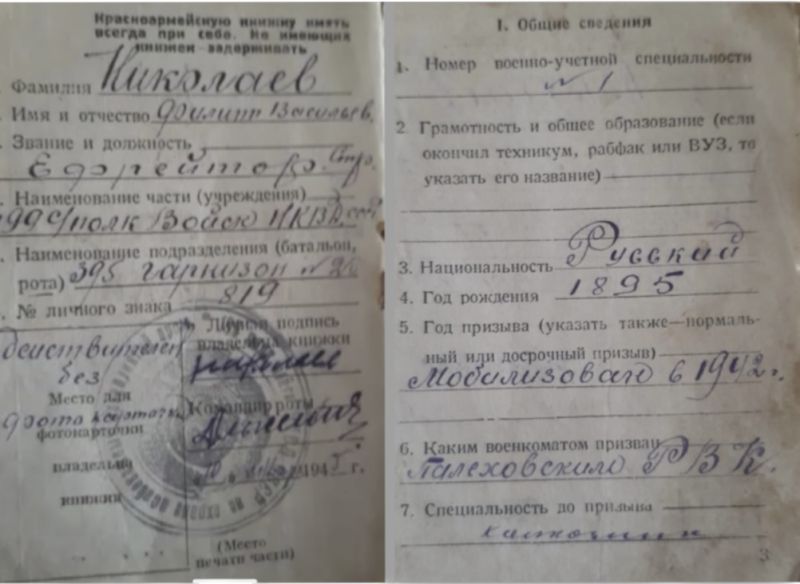 Красноармейскую книжку иметь
всегда при себе. Не имеющих
книжек задерживать
Фамилия Николаев
Имя и отчество Филипп Васильев.
Звание и должность
Ефрейтор. Стр.
Наименование части (учреждения)
полк Войск НКВД
Наименование подразделения (батальон,
рота) 395 гарнизон №
№ личного знака 819
действителен
без
Место для
фотокарточки
фотокарточки
владельца
книжки
Личная подпись
владельца книжки
Николаев
Командир роты
194 г.
(Место
печати части)
1. Общие сведения
1. Номер военно-учетной специальности
№ 1
2. Грамотность и общее образование (если
окончил техникум, рабфак или ВУЗ, то
указать его название)
3. Национальность Русский
4. Год рождения 1895
5. Год призыва (указать также—нормаль-
ный или досрочный призыв)
Мобилизован в 1942 г.
6. Каким военкоматом призван
Палеховским РВК.
7. Специальность до призыва
3